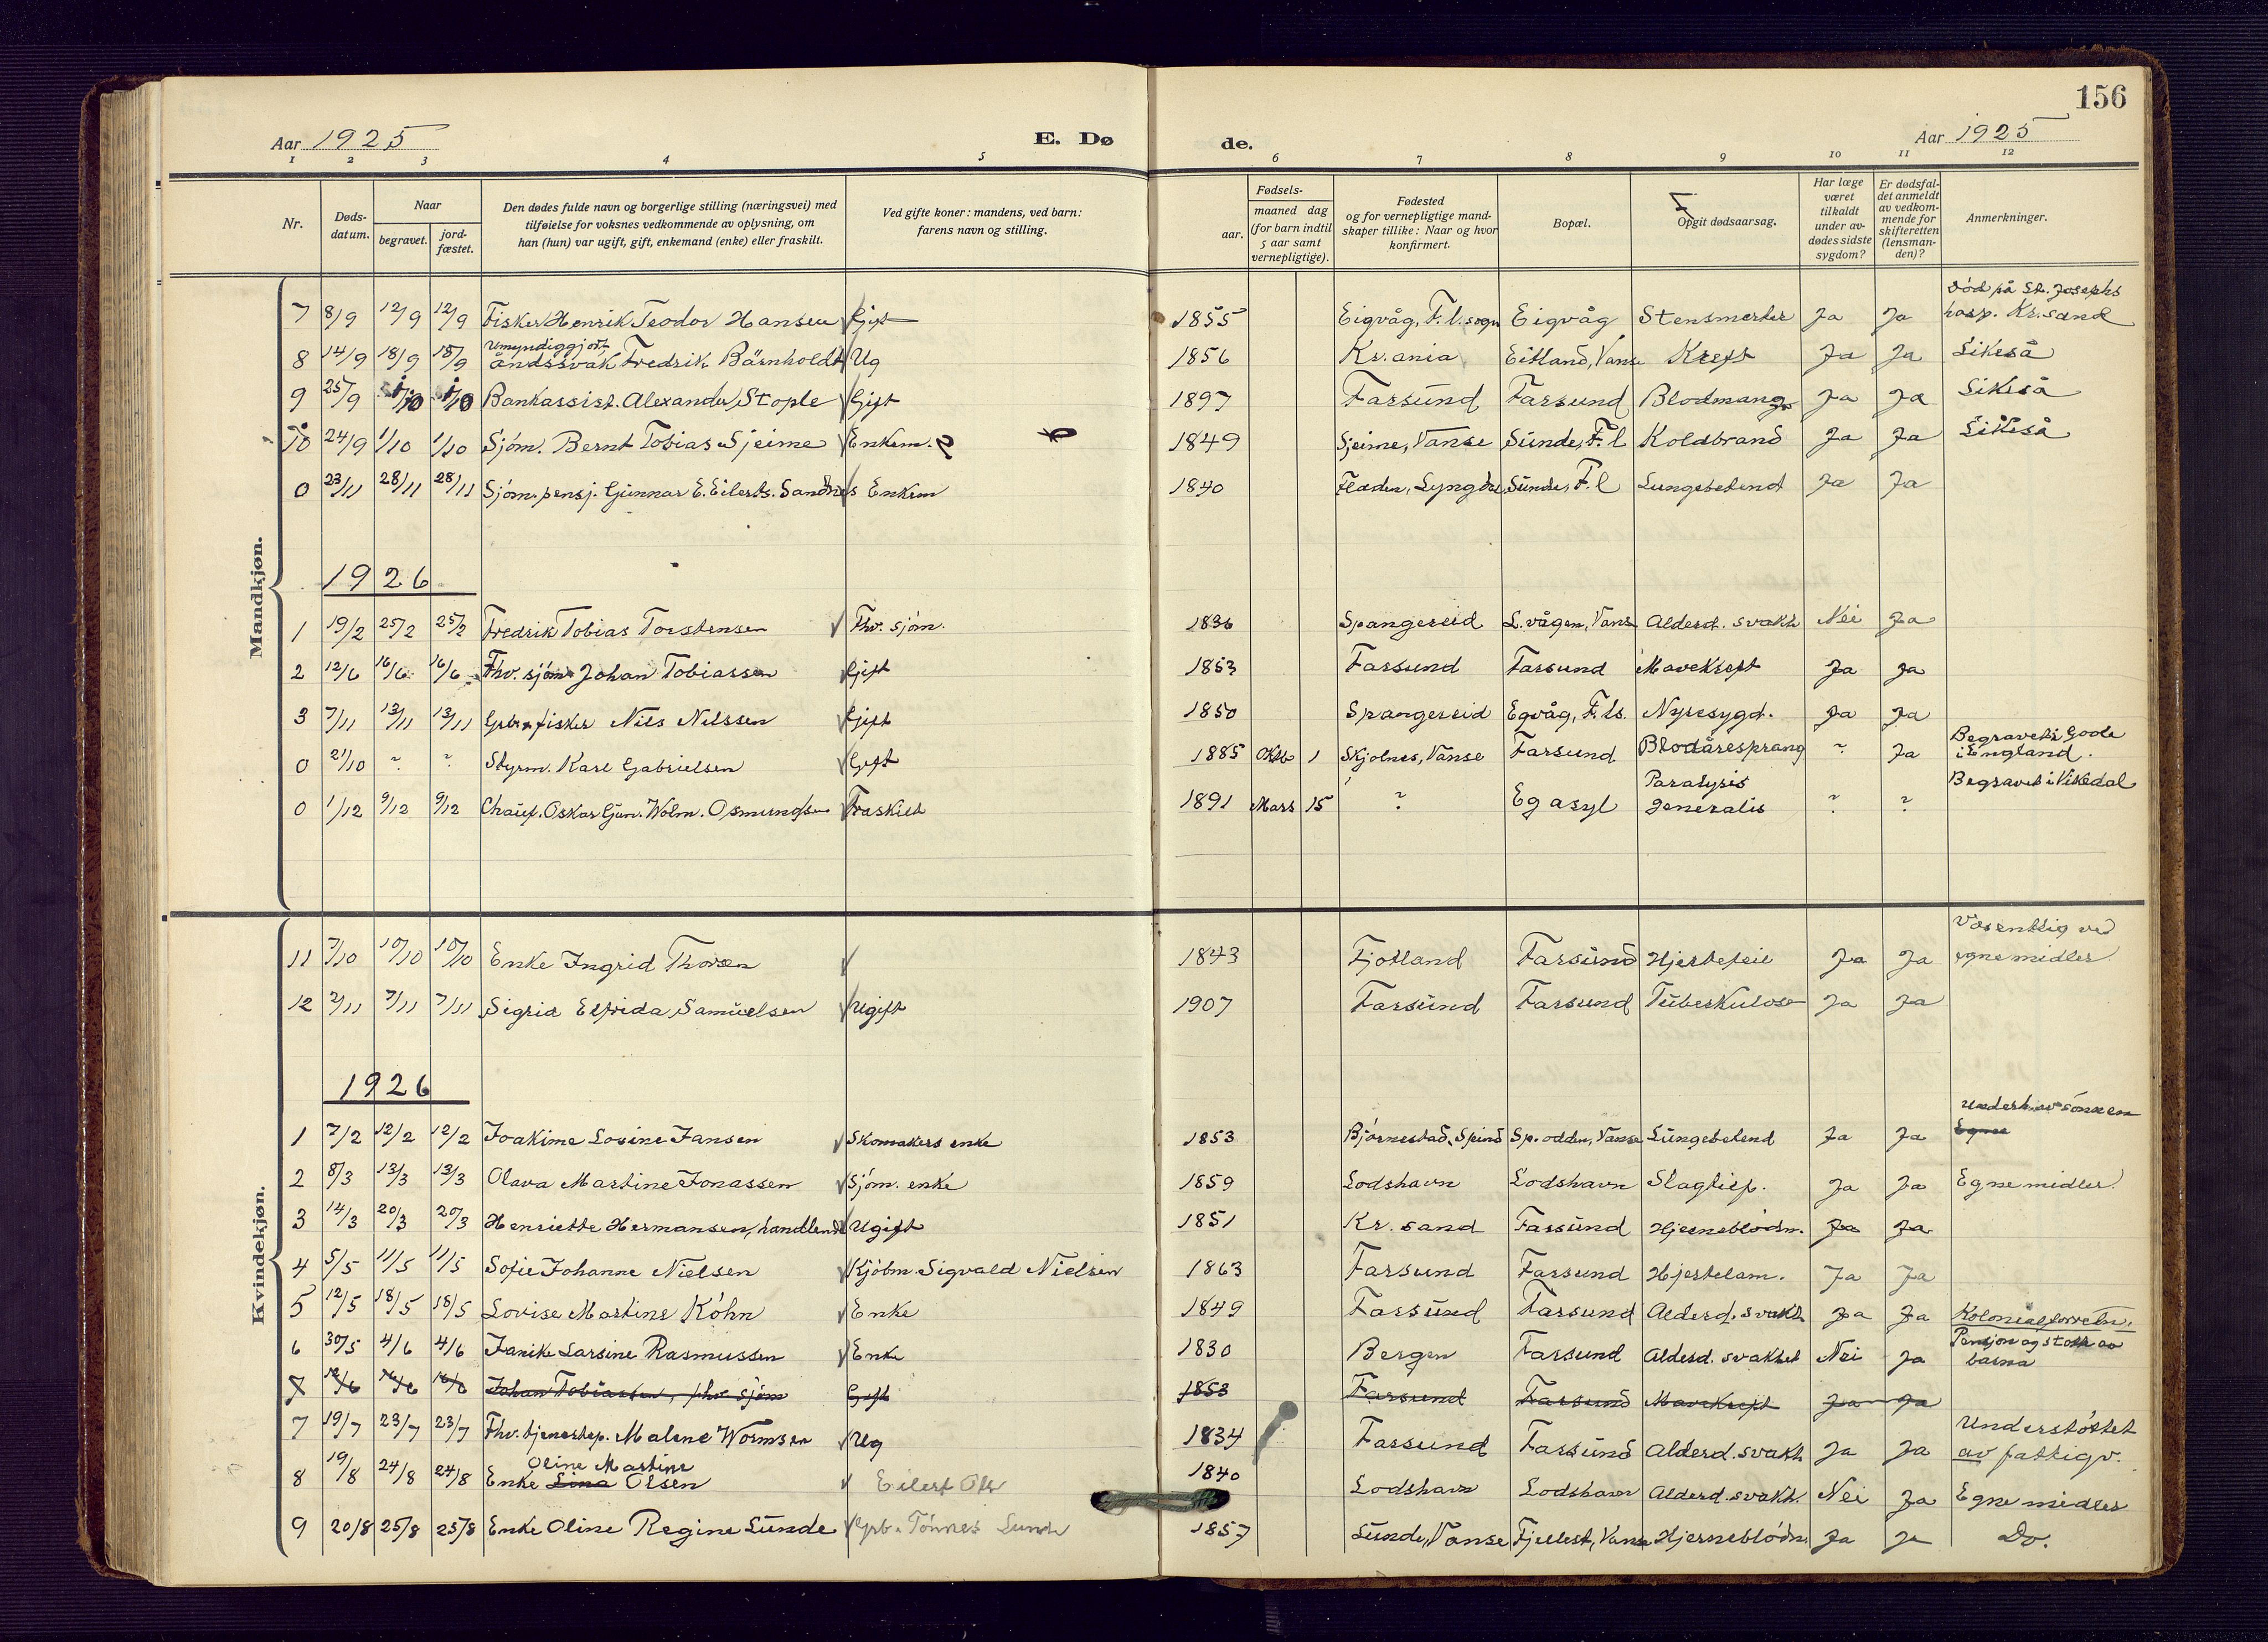 156
Aar 1925
E. Dø
de.
Aar 1925
1 2 3 4 5 6 7 8 9 10 11 12
Nr.
Døds-
datum.
Naar
begravet.
jord-
fæstet.
Den dødes fulde navn og borgerlige stilling (næringsvei) med
tilføielse for voksnes vedkommende av oplysning, om
han (hun) var ugift, gift, enkemand (enke) eller fraskilt.
Ved gifte koner: mandens, ved barn:
farens navn og stilling.
Fødsels-
aar.
maaned dag
(for barn indtil
5 aar samt
vernepligtige).
Fødested
og for vernepligtige mand-
skaper tillike: Naar og hvor
konfirmert.
Bopæl.
Opgit dødsaarsag.
Har læge
været
tilkaldt
under av-
dødes sidste
sygdom?
Er dødsfal-
det anmeldt
av vedkom-
mende for
skifteretten
(lensman-
den)?
Anmerkninger.
Mandkjøn.
Død på St. Josephs
7 8/9 12/9 12/9 Fisker Henrik Teodor Hansen Gift 1855 Eigvåg, F. l. sogn Eigvåg Stensmerter Ja Ja hosp. Kr.sand
Umyndiggjort
8 14/9 18/9 18/9 åndssvak Fredrik Bärnholdt Ug 1856 Kr.ania Eitland, Vanse Kreft Ja Ja Likeså
9 25/9 1/10 1/10 Bankassist. Alexander Stople Gift 1897 Farsund Farsund Blodmang. Ja Ja Likeså
10 24/9 1/10 1/10 Sjöm. Bernt Tobias Sjeime Enkem. 1849 Sjeime, Vanse Sunde, F. l Koldbrand Ja Ja Likeså
0 23/11 28/11 28/11 Sjöm. pensj. Gunnar E. Eilerts. Sandnes Enkem 1840 Fladen, Lyngdal Sunde, F. l Lungebetend Ja Ja
1926
1 19/2 25/2 25/2 Fredrik Tobias Torstensen Fhv. sjöm. 1836 Spangereid L.vågen, Vanse Alderd. svakh Nei Ja
2 12/6 16/6 16/6 Fhv. sjöm Johan Tobiassen Gift 1853 Farsund Farsund Mavekreft Ja Ja
3 7/11 13/11 13/11 Gbr. fisker Nils Nilssen Gift 1850 Spangereid Egvåg, F. ls. Nyresygd. Ja Ja
Begravet i Goole
0 21/10 ? ? Styrm. Karl Gabrielsen Gift 1885 Oktb 1 Skjolnes, Vanse Farsund Blodåresprang ? Ja i England.
Paralysis Begravet i Vikedal
0 1/12 9/12 9/12 Chauf. Oskar Gun. Wolm. Osmundsen Fraskilt 1891 Mars 15 ? Eg asyl generalis ? ?
Kvindekjøn.
Vesentlig ved
11 7/10 10/10 10/10 Enke Ingrid Thorsen 1843 Fjotland Farsund Hjertefeil Ja Ja egne midler
12 2/11 7/11 7/11 Sigrid Elfrida Samuelsen Ugift 1907 Farsund Farsund Tuberkulose Ja Ja
1926
Underh. av sönnen
1 7/2 12/2 12/2 Joakime Lovine Jansen Skomakers enke 1853 Björnestad, Spind Sp.odden, Vanse Lungebetend Ja Ja Egne
2 8/3 13/3 13/3 Olava Martine Jonassen Sjöm. enke 1859 Lodshavn Lodshavn Slagtilf. Ja Ja Egne midler.
3 14/3 20/3 20/3 Henriette Hermansen, handlende Ugift 1851 Kr. sand Farsund Hjerneblödn. Ja Ja
4 5/5 11/5 11/5 Sofie Johanne Nielsen Kjöbm. Sigvald Nielsen 1863 Farsund Farsund Hjertelam. Ja Ja
5 12/5 18/5 18/5 Lovise Martine Köhn Enke 1849 Farsund Farsund Alderd. svakh Ja Ja Kolonialforretn.
Pensjon og stötte av
6 30/5 4/6 4/6 Janike Larsine Rasmussen Enke 1830 Bergen Farsund Alderd. svakhet Nei Ja barna
7 12/6 16/6 16/6 Johan Tobiassen, fhv sjöm Gift 1853 Farsund Farsund Mavekreft Ja Ja
Understöttet
7 19/7 23/7 23/7 Fhv. tjenestep. Malene Wormsen Ug 1834 Farsund Farsund Alderd. svakh Ja Ja av fattigv.
Oline Martine
8 19/8 24/8 24/8 Enke Lina Olsen Eilert Ols 1840 Lodshavn Lodshavn Alderd. svakh. Nei Ja Egne midler
9 20/8 25/8 25/8 Enke Oline Regine Lunde Grb. Tönnes Lunde 1857 Lunde, Vanse Fjellest, Vanse Hjerneblödn Ja Ja Do.